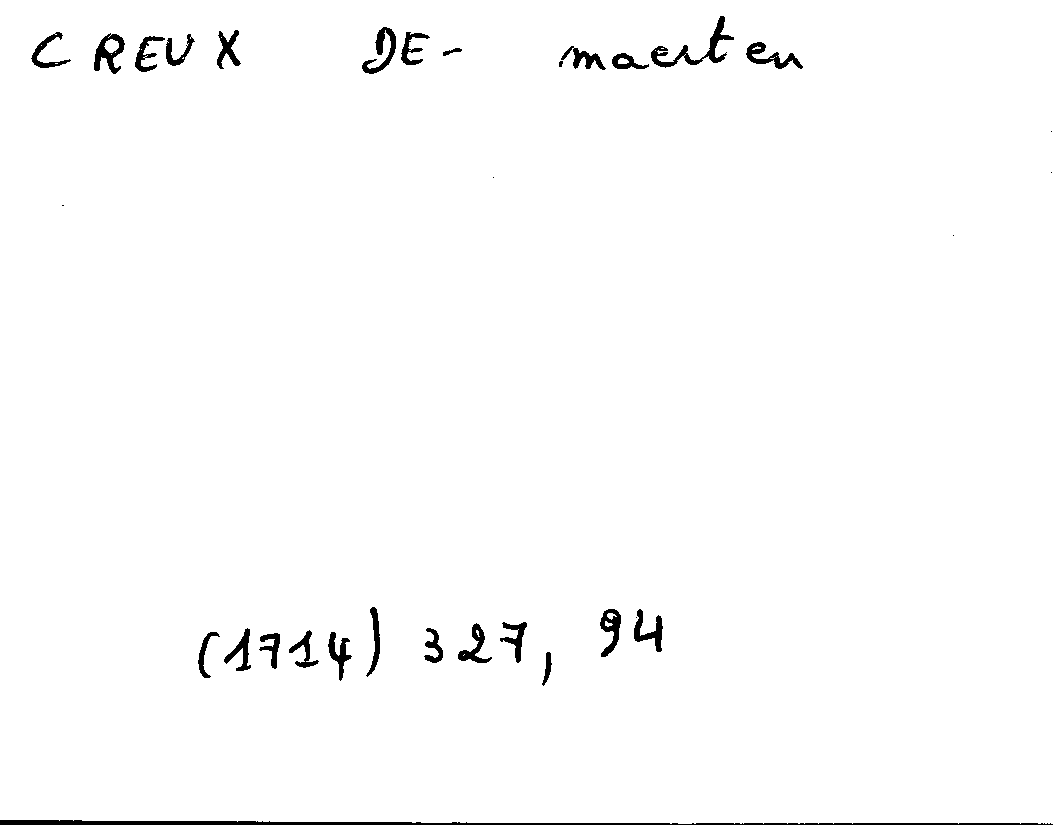 CREUX DE- maerten
(1714) 327, 94